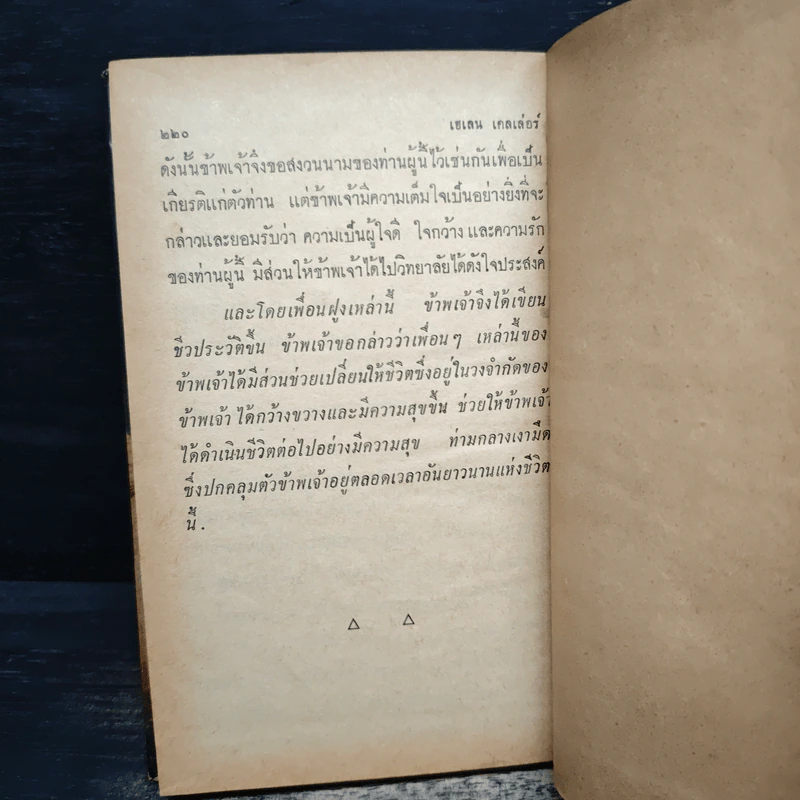 ๒๒๐ เฮเลน เคลเล่อร์
ดังนั้นข้าพเจ้าจึงขอสงวนนามของท่านผู้นี้ไว้เช่นกันเพื่อเป็น
เกียรติแก่ตัวท่าน แต่ข้าพเจ้ามีความเต็มใจเป็นอย่างยิ่งที่จะ
กล่าวและยอมรับว่า ความเป็นผู้ใจดี ใจกว้าง และความรัก
ของท่านผู้นี้ มีส่วนให้ข้าพเจ้าได้ไปวิทยาลัยได้ดังใจประสงค์
และโดยเพื่อนฝูงเหล่านี้ ข้าพเจ้าจึงได้เขียน
ชีวประวัติขึ้น ข้าพเจ้าขอกล่าวว่าเพื่อนๆ เหล่านี้ของ
ข้าพเจ้าได้มีส่วนช่วยเปลี่ยนให้ชีวิตซึ่งอยู่ในวงจำกัดของ
ข้าพเจ้า ได้กว้างขวางและมีความสุขขึ้น ช่วยให้ข้าพเจ้า
ได้ดำเนินชีวิตต่อไปอย่างมีความสุข ท่ามกลางเงามืด
ซึ่งปกคลุมตัวข้าพเจ้าอยู่ตลอดเวลาอันยาวนานแห่งชีวิต
นี้.